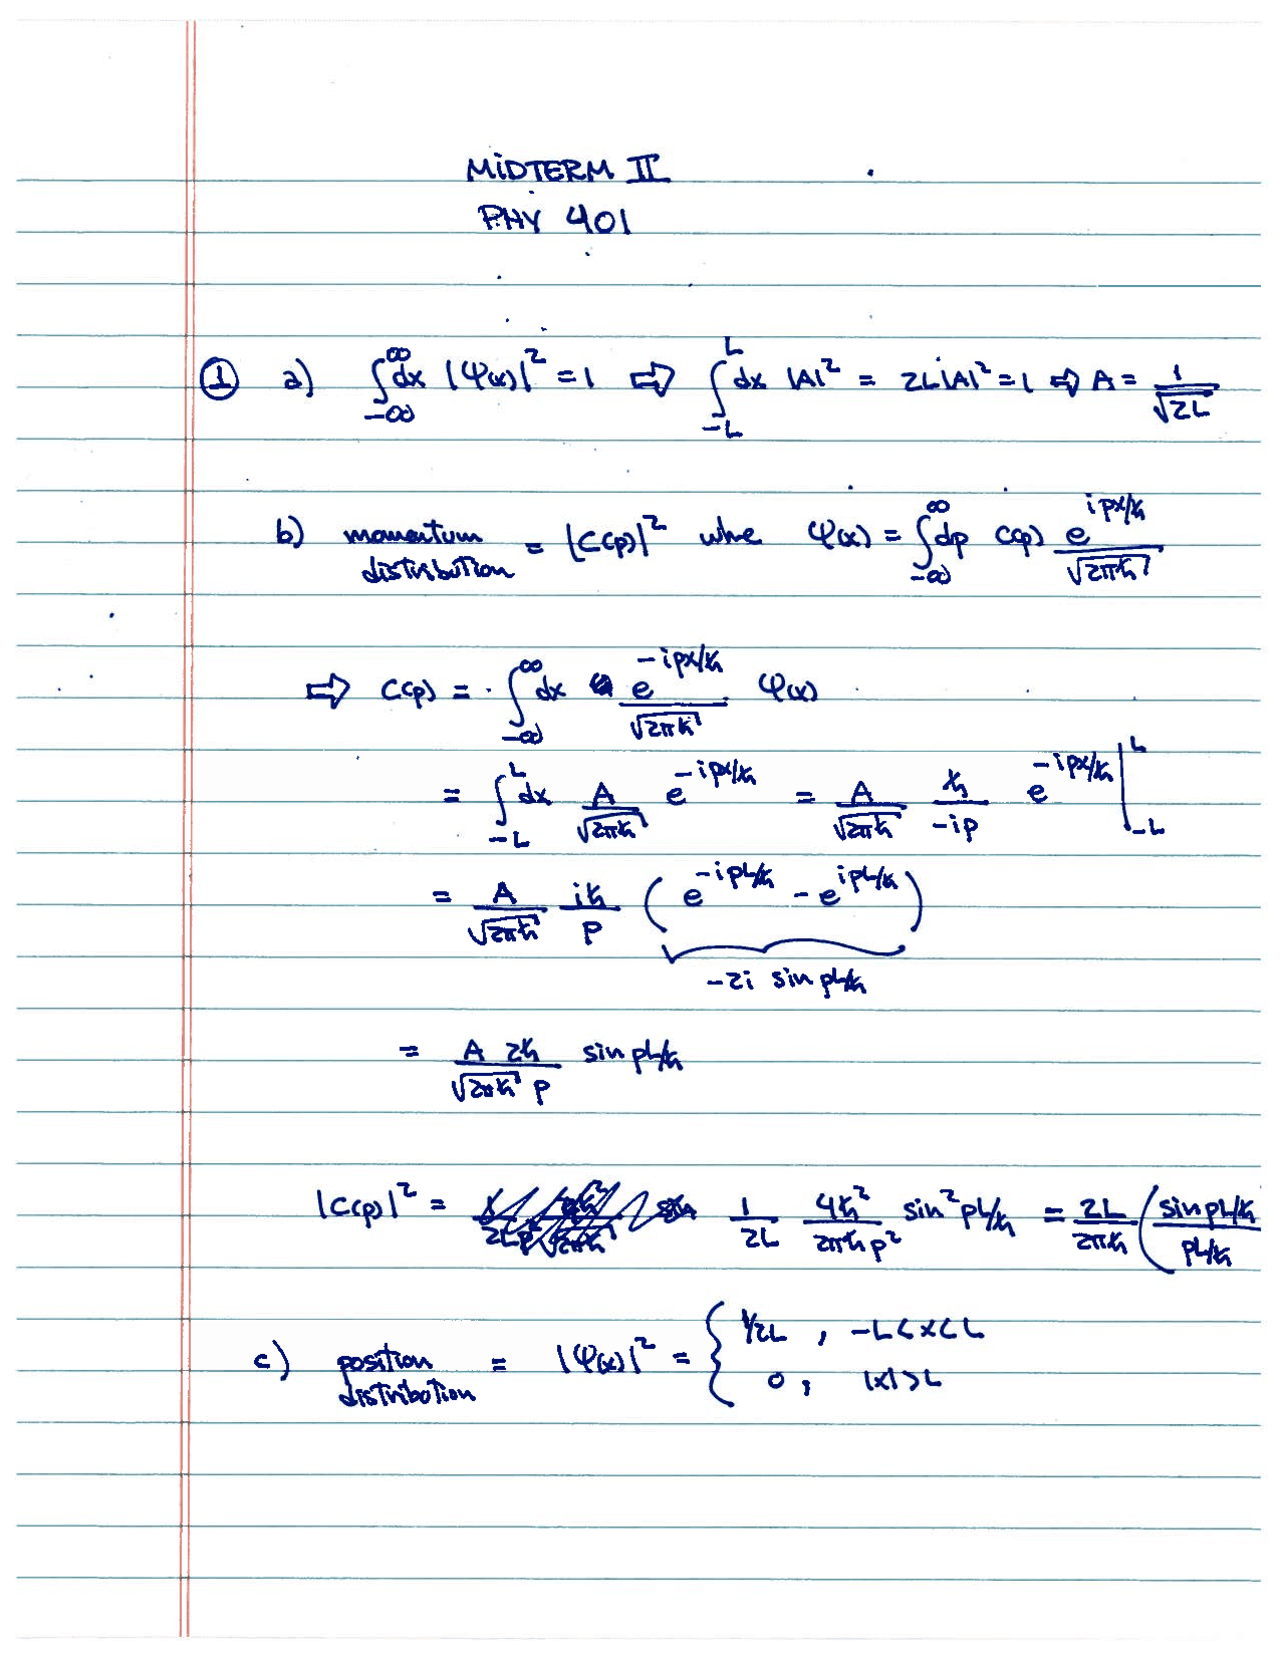 MIDTERM II
PHY 401
① a) ∫_{-∞}^{∞} dx |Ψ(x)|² = 1 ⇨ ∫_{-L}^{L} dx |A|² = 2L|A|² = 1 ⇨ A = 1/√2L
b) momentum distribution = |C(p)|² whre Ψ(x) = ∫_{-∞}^{∞} dp C(p) e^{ipx/ħ}/√2πħ
⇨ C(p) = ∫_{-∞}^{∞} dx e^{-ipx/ħ}/√2πħ Ψ(x)
= ∫_{-L}^{L} dx A/√2πħ e^{-ipx/ħ} = A/√2πħ ħ/-ip e^{-ipx/ħ} |_{-L}^{L}
= A/√2πħ iħ/p (e^{-ipL/ħ} - e^{ipL/ħ})
-2i sin pL/ħ
= A 2ħ/√2πħ p sin pL/ħ
|C(p)|² = 1/2L 4ħ²/2πħp² sin² pL/ħ = 2L/2πħ (sin pL/ħ / pL/ħ
c) position distribution = |Ψ(x)|² = { 1/2L , -L<x<L
0, |x|>L